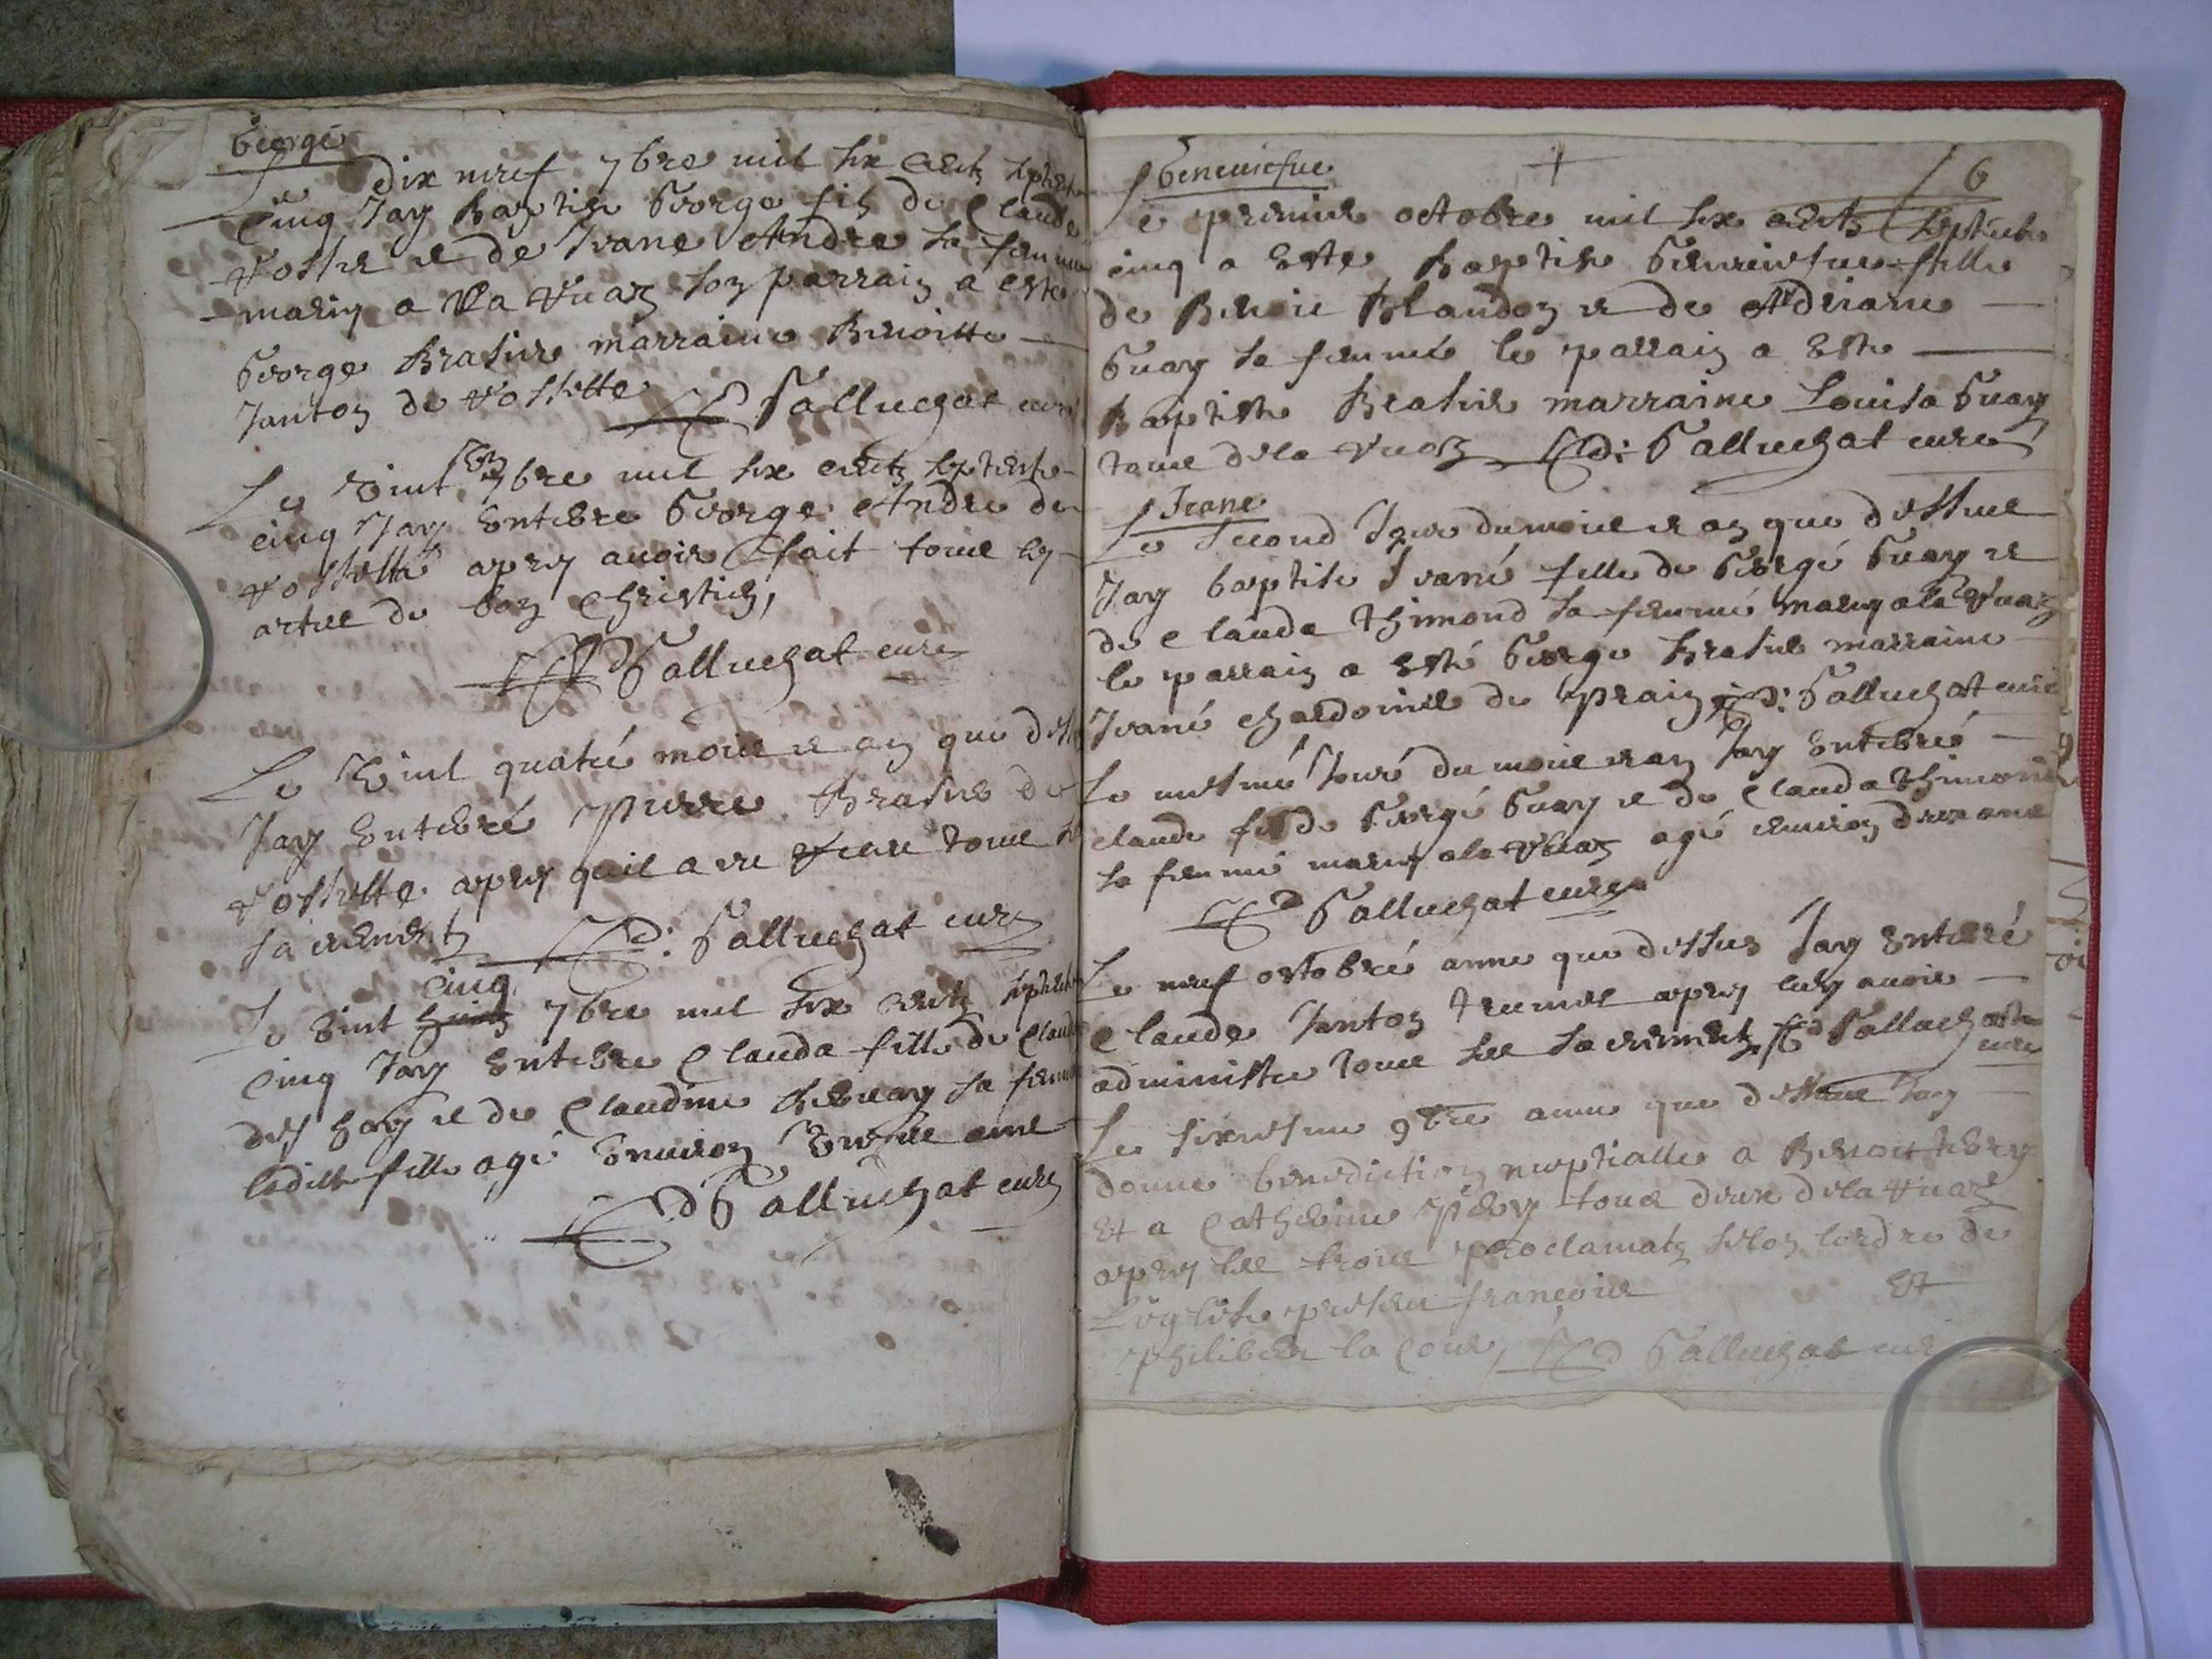 George
Le dix neuf 7bre mil six centz septente
cinq Jay baptise George fils de Claude
et de Jeane Andre sa femme
a la Vuaz son parrain a este
George Brasier marraine Benoitte
Janton de Vossette D Galluchat curé
Le vint 7bre mil six centz septente
cinq Jay enterre George Andre de
Vossette apres avoir fait tous les
actes de bon Chrestien,
D Galluchat cure
Le vint quatre mois et an que dess
Jay enterré Pierre Brasier de
Vossette apres quil a tous se
sacrements D: Galluchat curé
Le vint cinq 7bre mil six centz septente
cinq Jay enterre Clauda fille de Claude
et de Claudine sa femme
ladite fille agé environ ans
D Galluchat curé
Geneviefve + 6
Le premier octobre mil six centz septente
cinq a este baptise Geneviefve fille
de Benoit Blandon et de Adriane
Guay sa femme le parrain a este
Baptiste Brasier marraine Louisa Guay
tous de la Vuaz D: Galluchat curé
Jeane
Le second Jour du mois et an que dessus
Jay baptise Jeane fille de George Guay et
de Clauda Thimond sa femme a la Vuaz
le parrain a esté George Brasier marraine
Jeane Chardonier de D: Galluchat curé
Le mesme Jour du mois et an Jay enterré
claude fils de George Guay et de Clauda Thimond
sa femme a la Vuaz agé environ deux ans
D Galluchat curé
Le neuf octobre anne que dessus Jay enterré
Claude Janton apres luy avoir
administre tous les sacrements D Galluchat
cure
Le sixiesme 9bre anne que dessus Jay
donne benediction nuptialle a Benoit
et a Catherine tous deux de la Vuaz
apres les trois proclamatz selon lordre de
Leglise present francois et
philibert la Cour, D Galluchat curé